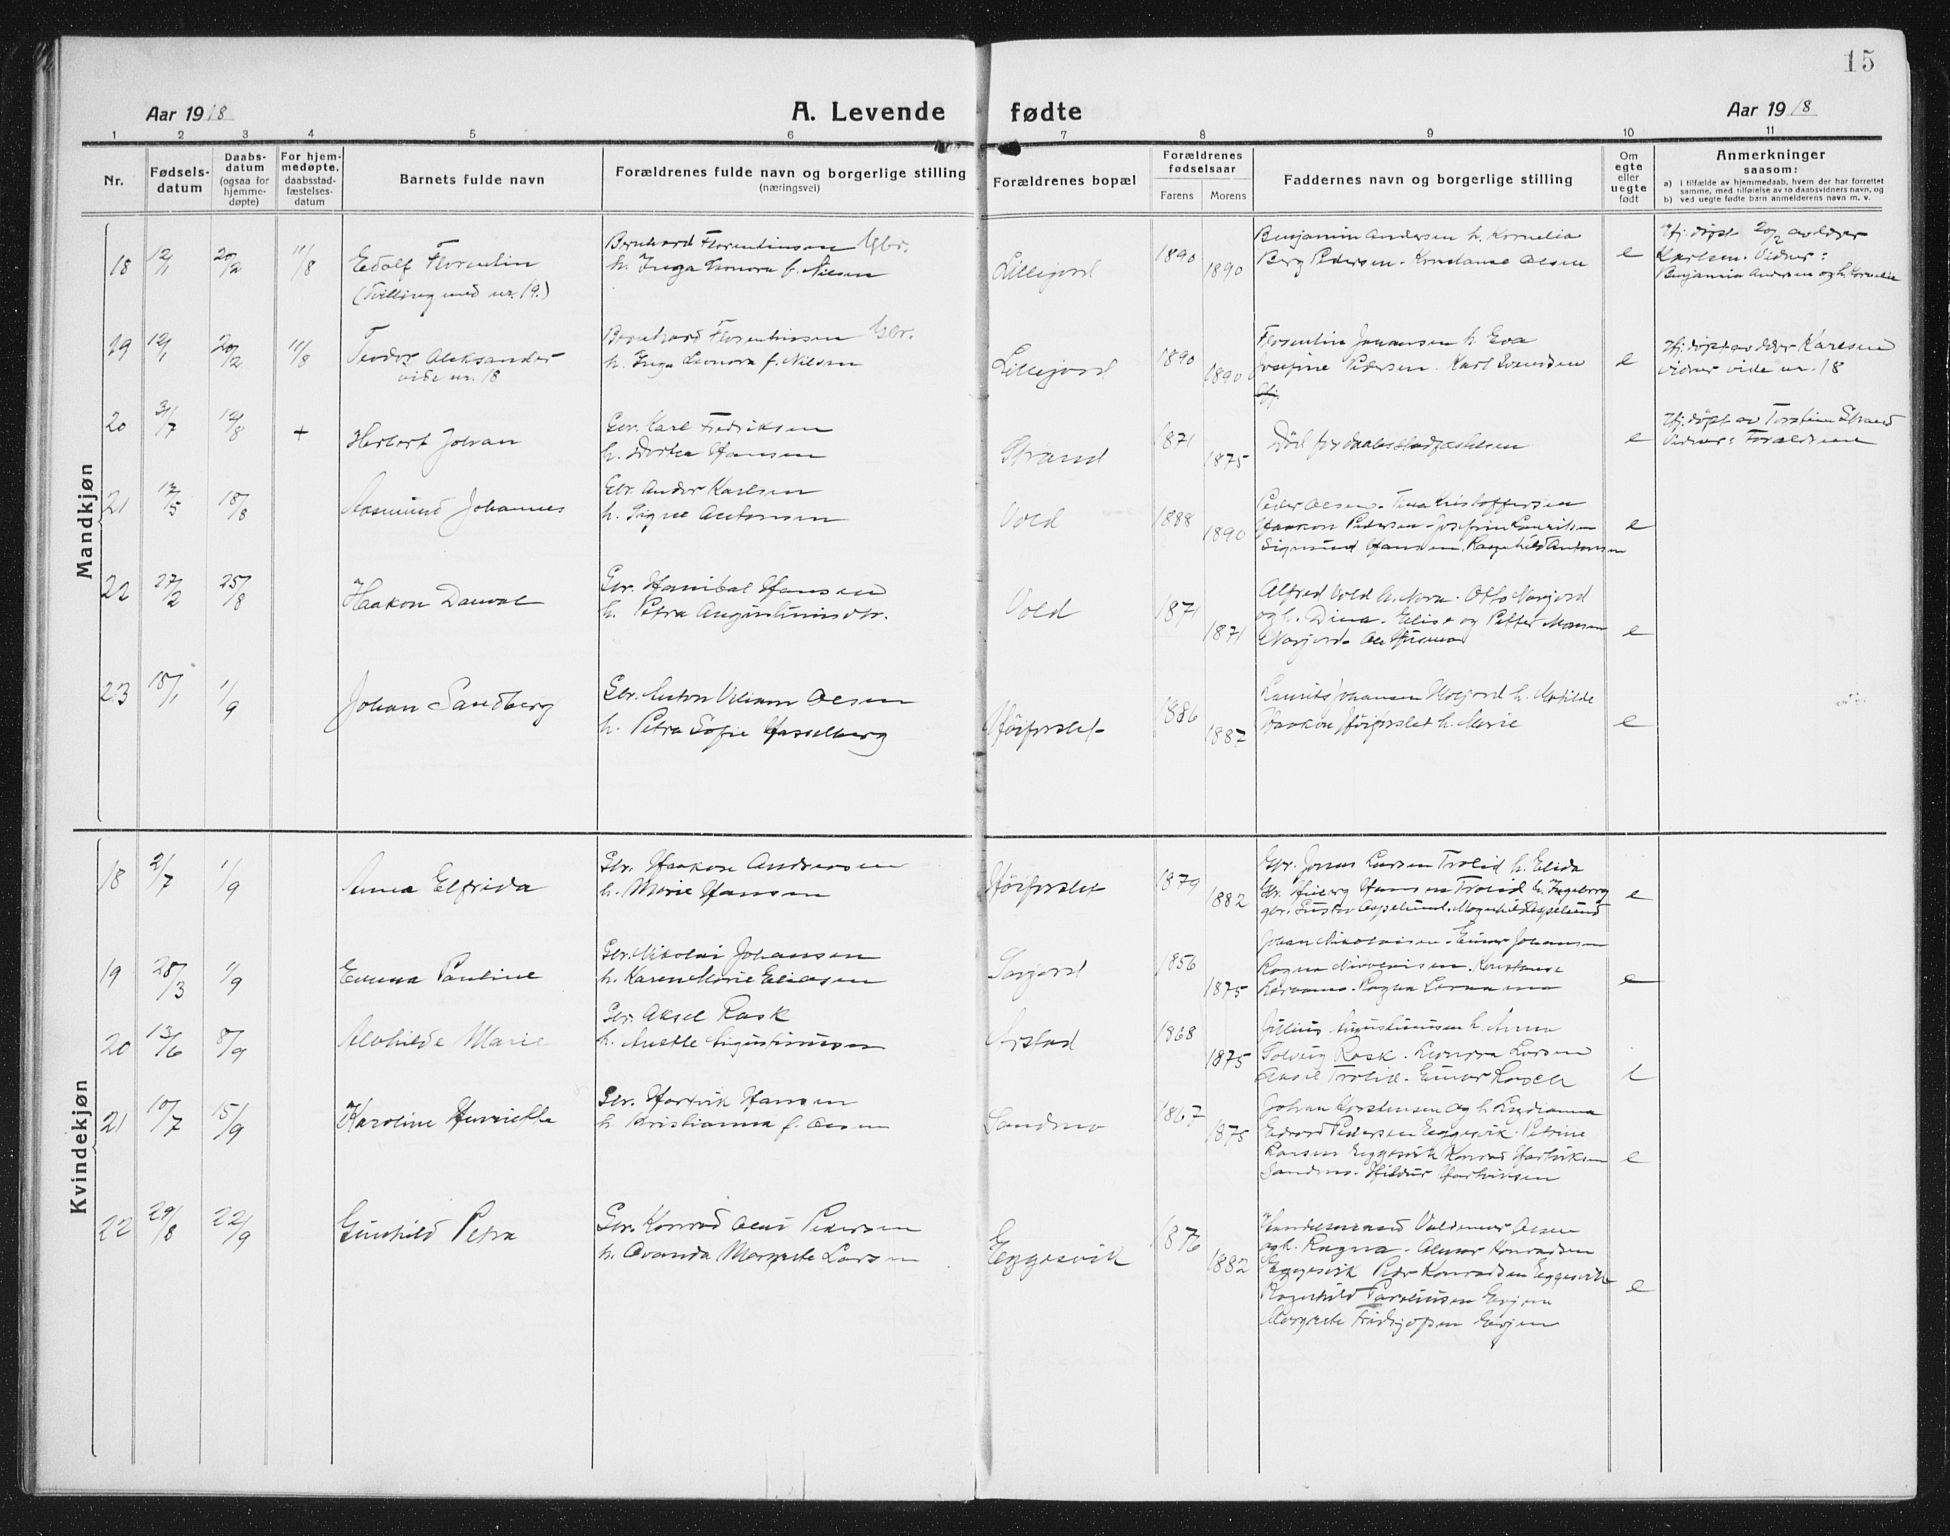 15
Aar 1918
A. Levende fødte
Aar 1918
1 2 3 4 5 6 7 8 9 10 11
Nr.
Fødsels-
datum
Daabs-
datum
(ogsaa for
hjemme-
døpte)
For hjem-
medøpte,
daabsstad-
fæstelses-
datum
Barnets fulde navn
Forældrenes fulde navn og borgerlige stilling
(næringsvei)
Forældrenes bopæl
Forældrenes
fødselsaar
Farens Morens
Faddernes navn og borgerlige stilling
Om
egte
eller
uegte
født
Anmerkninger
saasom:
a) i tilfælde av hjemmedaab, hvem der har forrettet
samme, med tilføielse av to daabsvidners navn, og
b) ved uegte fødte barn anmelderens navn m. v.
Mandkjøn
18 12/1 20/2 11/8
Edolf Florentin
(Tvilling med nr. 19.)
Bernhard Florentinsen Gbr.
h. Inga Leonora f. Nilsen
Lillejord
1890 1890
Benjamin Andersen h. Kornelia
Berg Pedersen. Konstanse Olsen
e
Hj. døpt 20/2 av
Karlsen. Vidner:
Benjamin Andersen og h. Kornelia
19 12/1 20/2 11/8
Teodor Aleksander
vide nr. 18
Bernhard Florentinsen Gbr.
h. Inga Leonora f. Nilsen
Lillejord
1890 1890
Florentin Johansen h. Eva
Josefine Pedersen. Karl Svendsen
Hj
e
Hj. døpt av Karlsen
vidner vide nr. 18
20 31/7 12/8 +
Herbert Johan
Gbr. Karl Fredriksen
h. Dortea Hansen
Strand
1871 1875
Død før daabsstadfæstelsen
e
Hj. døpt av Torstein Strand
Vidner: Forældrene
21 17/5 18/8
Aasmund Johannes
Gbr. Andor Karlsen
h. Signe Antonsen
Vold
1888 1890
Peder Olsen. Tina Kristoffersen
Haakon Pedersen. Josefine Lauritsen
Sigmund Hansen. Ragnhild Antonsen
e
22 27/2 25/8
Haakon
Gbr. Hanibal Hansen
h. Petra Augustinusdtr.
Vold
1871 1871
Alfred Vold h. Nora. Otto
og h. Dina. Elise og Petter
e
23 15/1 1/9
Johan Sandberg
Gbr. Anton Viliam Olsen
h. Petra Sofie Hasselberg
Høiforslet
1886 1887
Laurits Johansen h. Matilde
Haakon Høiforslet h. Marie
e
Kvindekjøn
18 2/7 1/9
Anna Elfrida
Gbr. Haakon Andreasen
h. Marie Hansen
Høiforslet
1879 1882
Gbr. Jonas Larsen Trolid h. Elida
Gbr. Hansen Trolid h. Ingeborg
gbr. Gustav
e
19 28/3 1/9
Emma Pauline
Gbr. Nikolai Johansen
h. Karen Marie Eliasen
Sørjord
1856 1875
Johan Nikolaisen. Einar Johansen
Ragna Nikolaisen. Konstanse
e
20 13/6 8/9
Mathilde Marie
Gbr. Aksel Rask
h. Anette Augustinussen
Arstad
1868 1875
Julius Augustinussen h. Anna
Solveig Rask. Leonora Larsen
Aksel Trolid. Einar Rasch
e
21 10/7 15/9
Karoline Henriette
Gbr. Hartvik Hansen
h. Kristianna f. Olsen
Sandmo
1867 1875
Johan Torstensen og h. Lydianna
Edvard Pedersen Eggesvik. Petrine
Larsen Eggesvik Konrad Hartviksen
Sandmo. Hildur Hartviksen
e
22 29/8 22/9
Gunhild Petra
Gbr. Konrad Olai Pedersen
h. Ovanda Margrete Larsen
Eggesvik
1876 1882
Handelsmand Valdemar Olsen
og h. Ragna. Almar Konradsen
Eggesvik Peder Konradsen Eggesvik
Ragnhild Karolinsen Evjen
Margrete Fridtjofsen Evjen
e